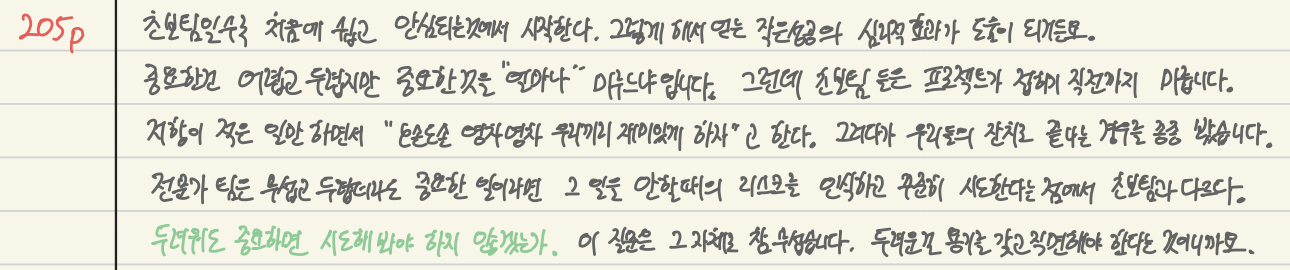 205p
초보팀일수록 처음에 쉽고 안심되는것에서 시작한다. 그렇게 해서 얻는 작은성공의 심리적 효과가 도움이 되거든요.
중요한건 어렵고 두렵지만 중요한 것을 "얼마나" 미루느냐 입니다. 그런데 초보팀들은 프로젝트가 접히기 직전까지 미룹니다.
저항이 적은 일만 하면서 "도손도손 영차영차 우리끼리 재미있게 하자"고 한다. 그러다가 우리들의 잔치로 끝나는 경우를 종종 봤습니다.
전문가 팀은 무섭고 두렵더라도 중요한 일이라면 그 일을 안할때의 리스크를 인식하고 꾸준히 시도한다는 점에서 초보팀과 다르다.
두려워도 중요하면 시도해봐야 하지 않겠는가. 이 질문은 그 자체로 참 무섭습니다. 두려운건 용기를 갖고 직면해야 한다는 것이니까요.